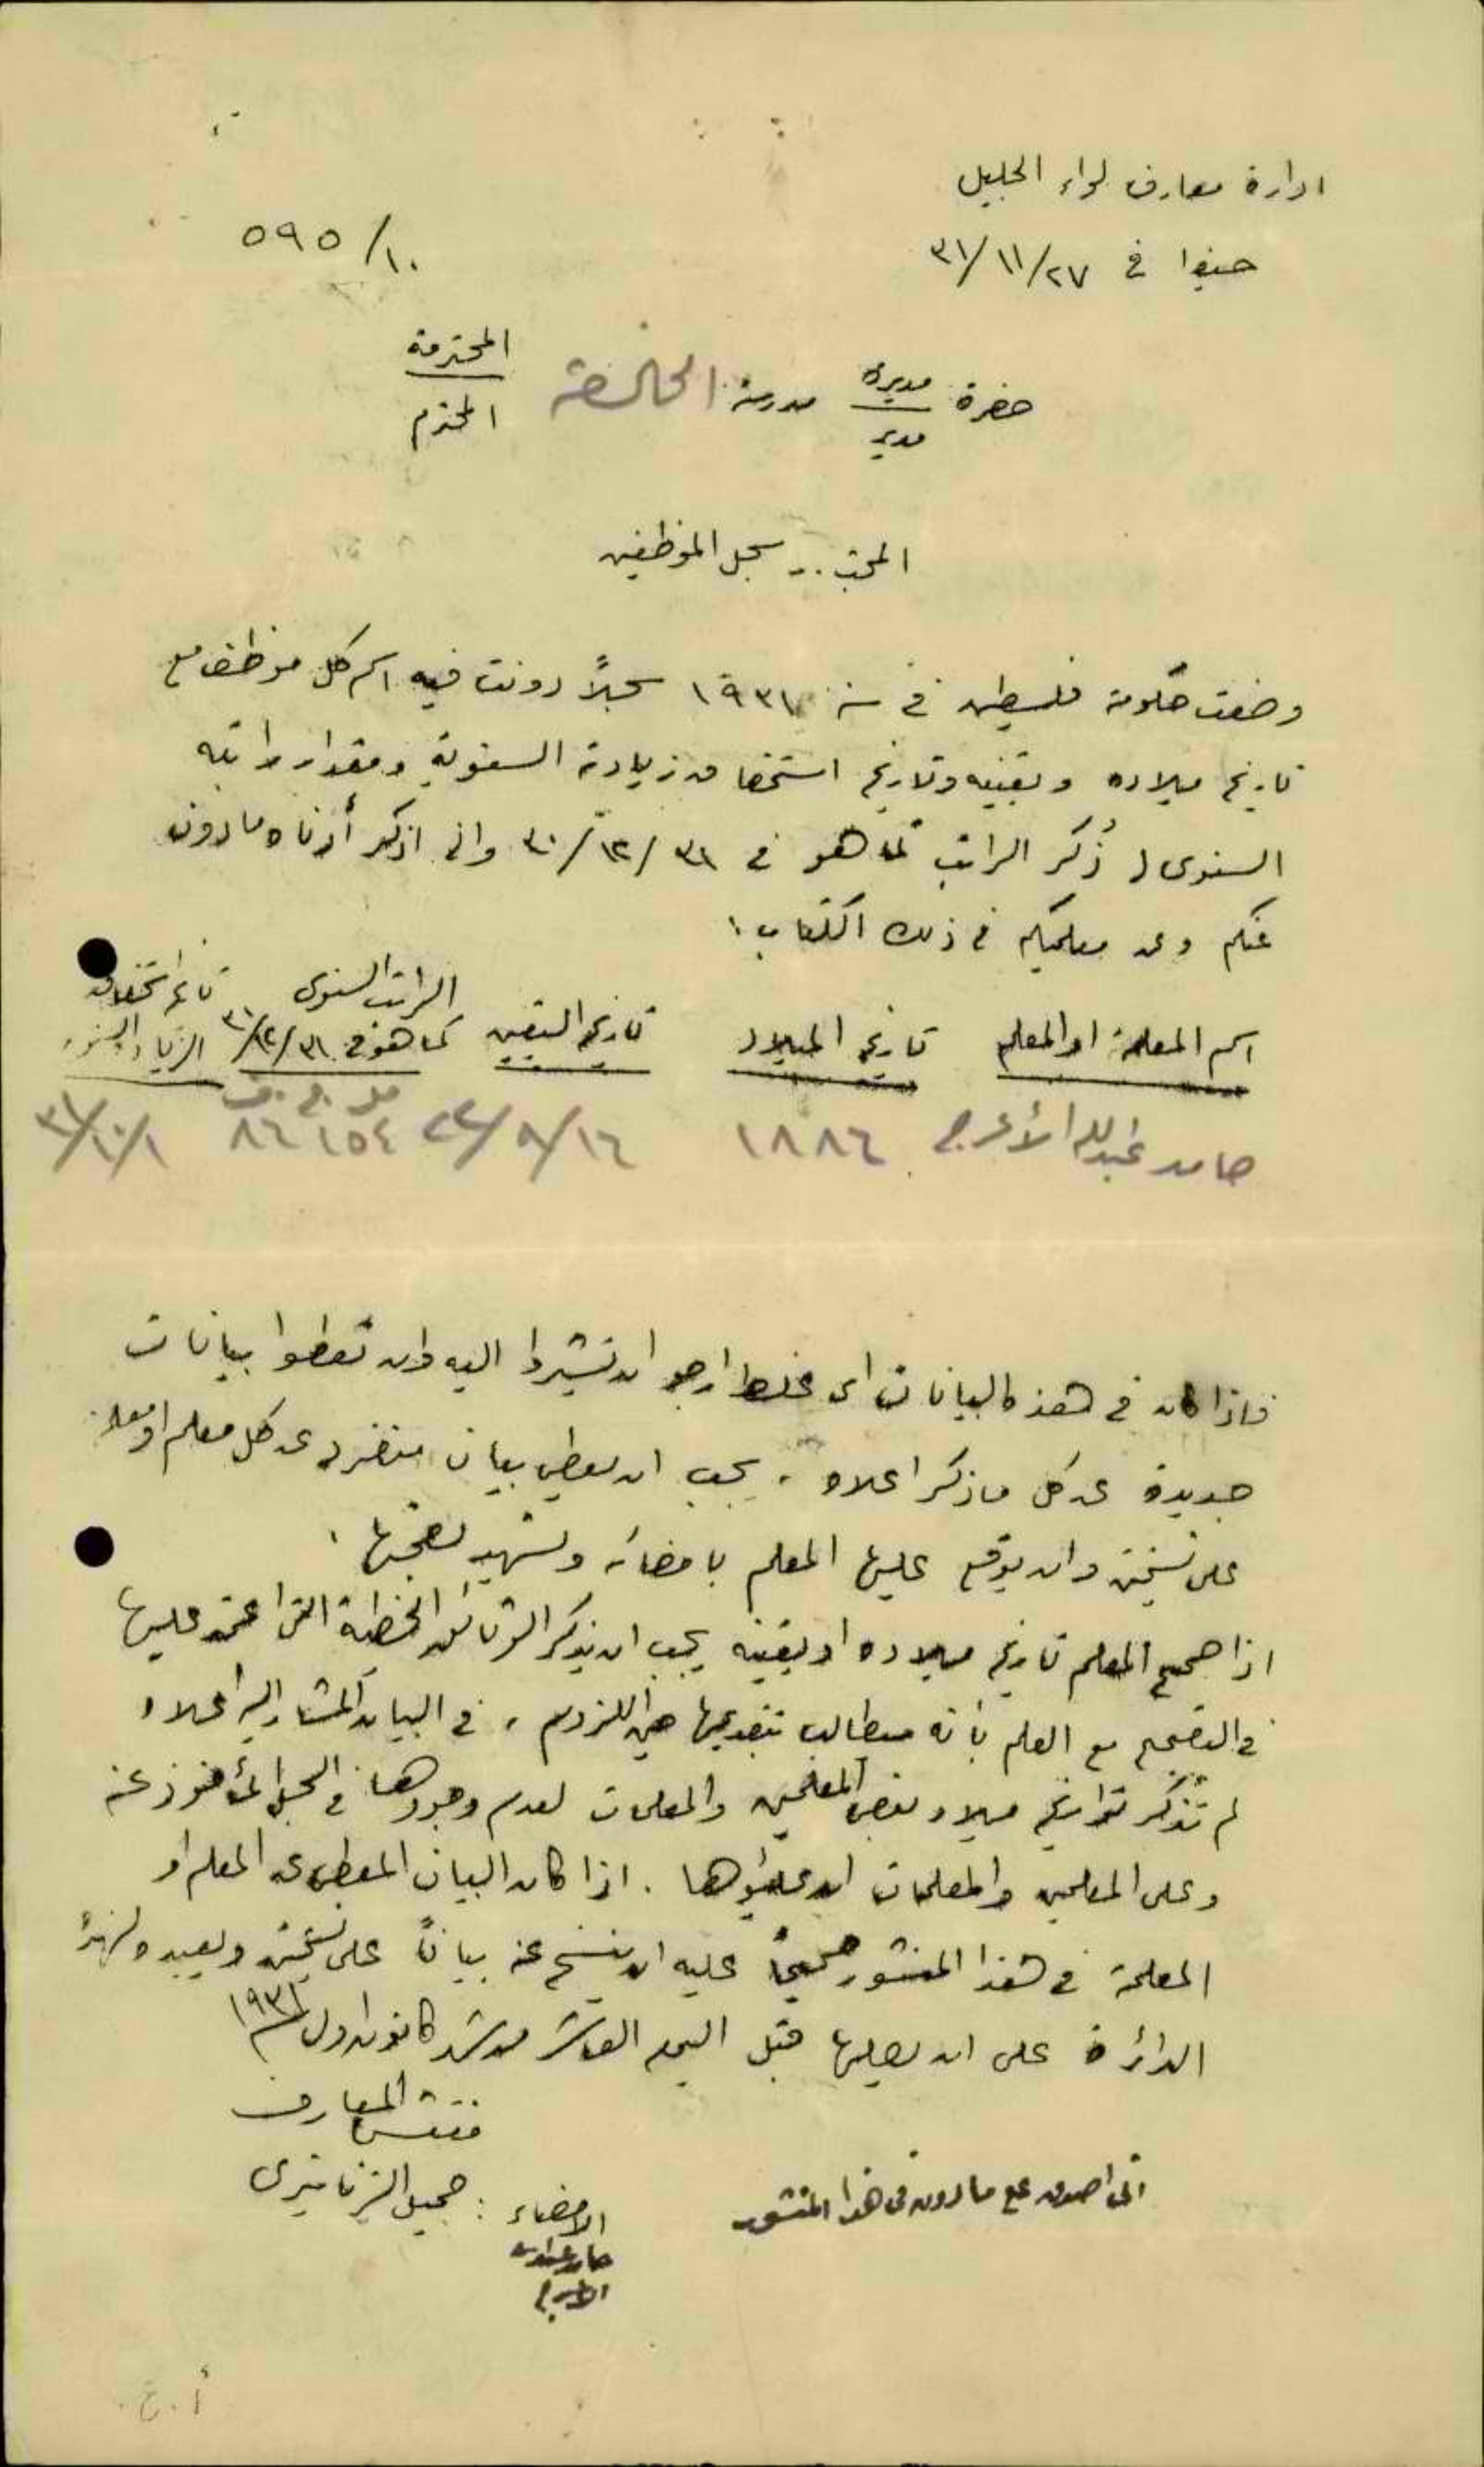 ادارة معارف لواء الجليل
حيفا في ٢٧/١١/٣١
١٠/٥٩٥
حضرة مديرة مدرسة الخالصة المحترمة
مدير المحترم
سجل الموظفين
وضعت حكومة فلسطين في سنة ١٩٣١ سجلاً دونت فيه اسم كل موظف مع
تاريخ ميلاده وتعيينه وتاريخ استحقاقه زيادته السنوية ومقدار راتبه
السنوي وذُكر الراتب كما هو في ٣١/١٢/٣٠ واني اذكر أدناه ما دون
عنكم وعن معلميكم في ذلك الكتاب:
اسم المعلمة او المعلم
تاريخ الميلاد
تاريخ التعيين
الراتب السنوي
كما هو في ٣١/١٢/٣٠
تاريخ استحقاق
الزيادة السنوية
حامد عبدالله الأعرج ١٨٨٦ ١٦/٩/٢٢ ١٥٤ ٨٦ ١/١٠/٣١
فاذا كان في هذه البيانات اي غلط ارجو ان تشيروا اليه وان تعطوا بيانات
جديدة عن كل ما ذكر اعلاه، يجب ان يعطى بيان منفرد عن كل معلم او معلمة
على نسختين وان يوقع عليها المعلم بامضائه وتشهد بصحتها.
اذا صحح المعلم تاريخ ميلاده او تعيينه يجب ان يذكر الوثائق الخطية التي اعتمد عليها
في التصحيح مع العلم بأنه مطالب بتقديمها حين اللزوم، في البيان المشار اليه اعلاه
لم تُذكر تواريخ ميلاد بعض المعلمين والمعلمات لعدم وجودها في السجل المأخوذ عنه
وعلى المعلمين والمعلمات ان يملؤها. اذا كان البيان المعطى عن المعلم او
المعلمة في هذا المنشور صحيحاً عليه ان ينسخ عنه بياناً على نسختين ويعيده لهذه
الدائرة على ان يصلها قبل اليوم العاشر من شهر كانون اول ١٩٣١
مفتش المعارف
الامضاء: جميل الزناتيري
اني اصدق على ما دون في هذا المنشور
حامد عبدالله
الاعرج
أ.خ.